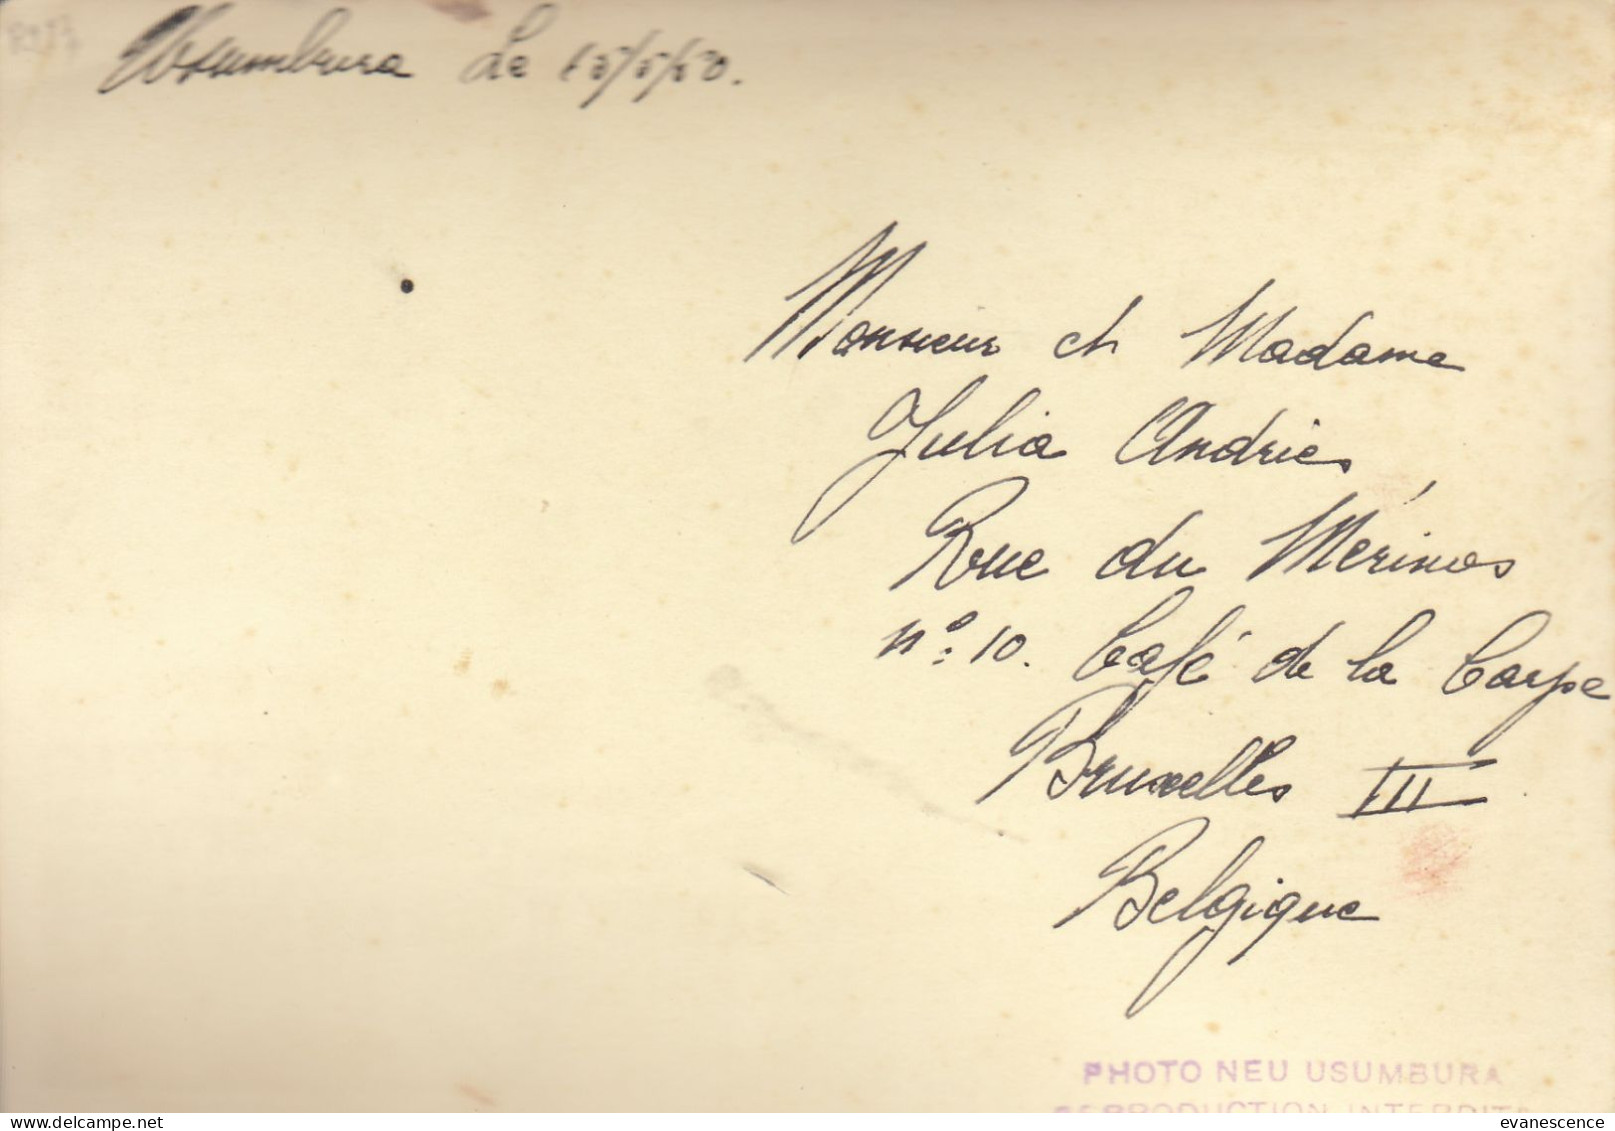 Usumbura Le 15/5/50.
Monsieur et Madame
Julia Andries
Rue du Mérinos
n°: 10. Café de la Carpe
Bruxelles III
Belgique
PHOTO NEU USUMBURA
REPRODUCTION INTERDITE
delcampe.net
evanescence